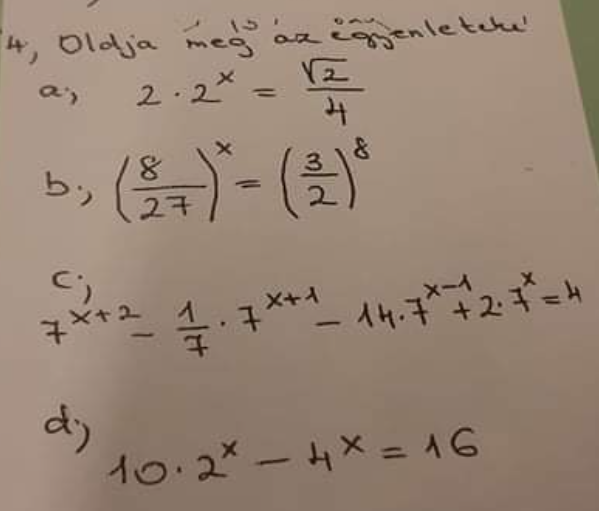 4, Oldja meg az egyenleteket
a., 2 · 2^x = √2/4
b., (8/27)^x = (3/2)^8
c.,
7^(x+2) - 1/7 · 7^(x+1) - 14 · 7^(x-1) + 2 · 7^x = 4
d.,
10 · 2^x - 4^x = 16